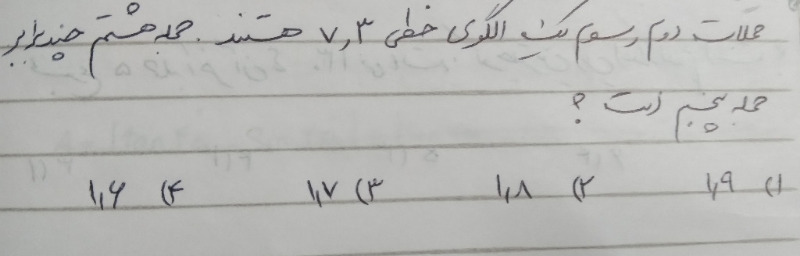 جملات دوم و سوم یک الگوی خطی ۳ و ۷ هستند. جمله هشتم چند برابر
جمله پنجم است ؟
۱) ۱٫۹ ۲) ۱٫۸ ۳) ۱٫۷ ۴) ۱٫۶